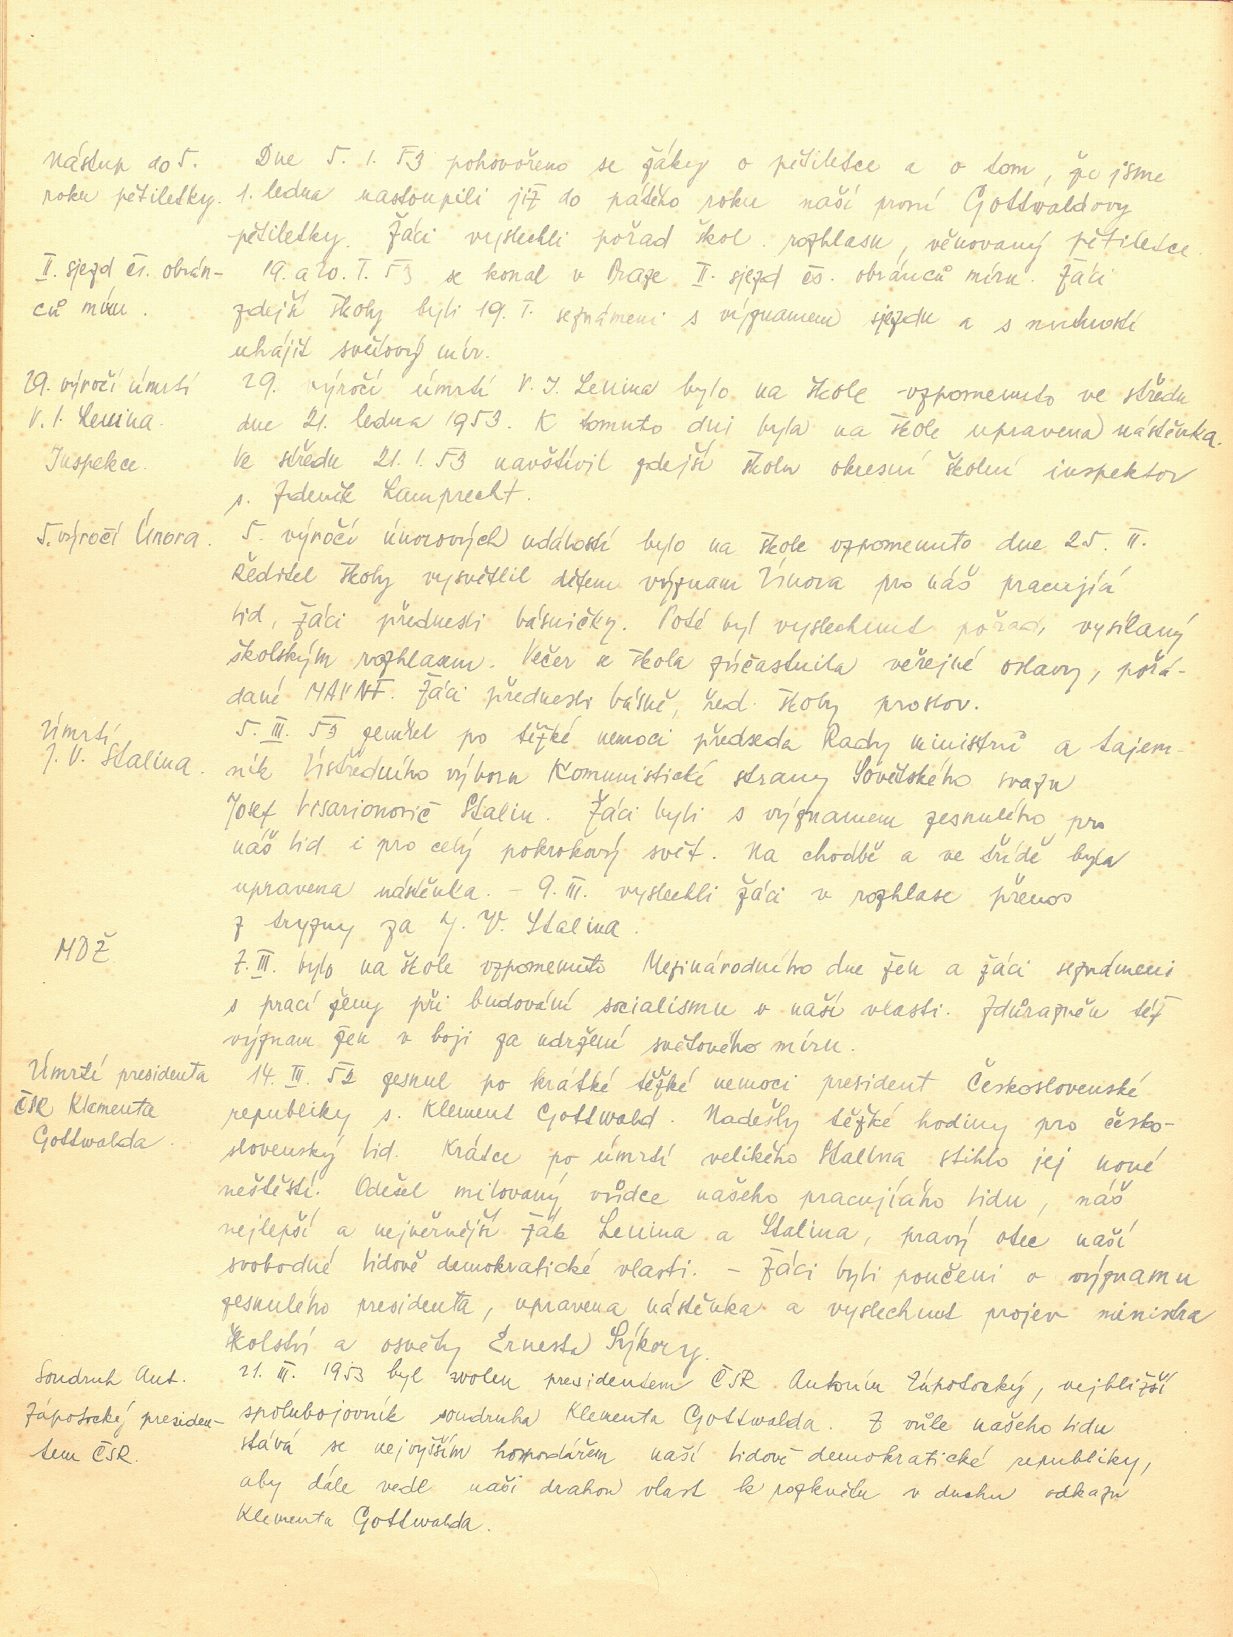 Nástup do 5.
roku pětiletky.
Dne 5. 1. 53 pohovořeno se žáky o pětiletce a o tom, že jsme
1. ledna nastoupili již do pátého roku naší první Gottwaldovy
pětiletky. Žáci vyslechli pořad škol. rozhlasu, věnovaný pětiletce.
II. sjezd čs. obrán-
ců míru.
19. a 20. I. 53 se konal v Praze II. sjezd čs. obránců míru. Žáci
zdejší školy byli 19. I. seznámeni s významem sjezdu a s nutností
uhájit světový mír.
29. výročí úmrtí
V. I. Lenina.
29. výročí úmrtí V. I. Lenina bylo na škole vzpomenuto ve středu
dne 21. ledna 1953. K tomuto dni byla na škole upravena nástěnka.
Inspekce.
Ve středu 21. 1. 53 navštívil zdejší školu okresní školní inspektor
s. Zdeněk Lamprecht.
5. výročí Února.
5. výročí únorových událostí bylo na škole vzpomenuto dne 25. II.
Ředitel školy vysvětlil dětem význam Února pro náš pracující
lid, žáci přednesli básničky. Poté byl vyslechnut pořad, vysílaný
školským rozhlasem. Večer se škola zúčastnila veřejné oslavy, pořá-
dané MAVNF. Žáci přednesli básně, řed. školy proslov.
Úmrtí
J. V. Stalina.
5. III. 53 zemřel po těžké nemoci předseda Rady ministrů a tajem-
ník Ústředního výboru Komunistické strany Sovětského svazu
Josef Visarionovič Stalin. Žáci byli s významem zesnulého pro
náš lid i pro celý pokrokový svět. Na chodbě a ve třídě byla
upravena nástěnka. - 9. III. vyslechli žáci v rozhlase přenos
z tryzny za J. V. Stalina.
MDŽ
7. III. bylo na škole vzpomenuto Mezinárodního dne žen a žáci seznámeni
s prací ženy při budování socialismu v naší vlasti. Zdůrazněn též
význam žen v boji za udržení světového míru.
Úmrtí presidenta
ČSR Klementa
Gottwalda.
14. III. 53 zesnul po krátké těžké nemoci president Československé
republiky s. Klement Gottwald. Nadešly těžké hodiny pro česko-
slovenský lid. Krátce po úmrtí velikého Stalina stihlo jej nové
neštěstí. Odešel milovaný vůdce našeho pracujícího lidu, náš
nejlepší a nejvěrnější žák Lenina a Stalina, pravý otec naší
svobodné lidově demokratické vlasti. - Žáci byli poučeni o významu
zesnulého presidenta, upravena nástěnka a vyslechnut projev ministra
školství a osvěty Ernesta Sýkory.
Soudruh Ant.
Zápotocký presiden-
tem ČSR.
21. III. 1953 byl zvolen presidentem ČSR Antonín Zápotocký, nejbližší
spolubojovník soudruha Klementa Gottwalda. Z vůle našeho lidu
stává se nejvyšším hospodářem naší lidově demokratické republiky,
aby dále vedl naši drahou vlast k rozkvětu v duchu odkazu
Klementa Gottwalda.